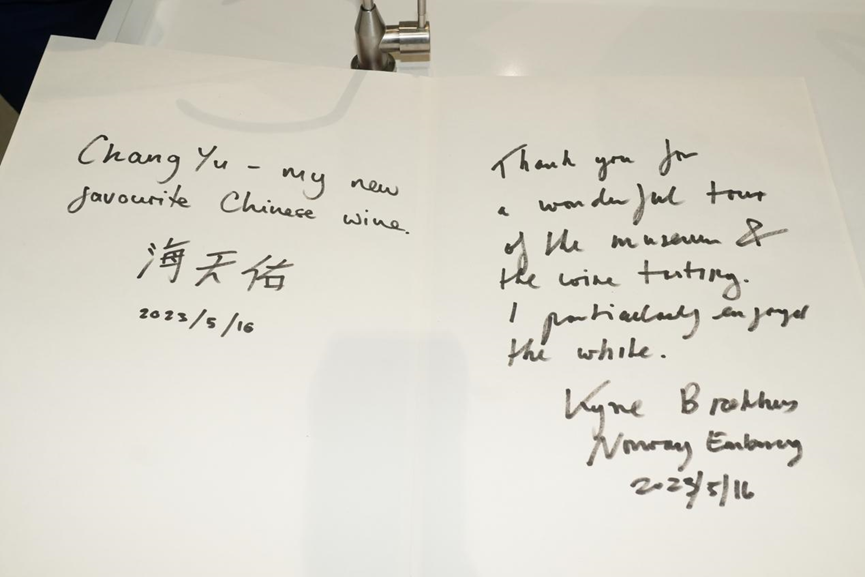 Chang Yu - my new
favourite Chinese wine.
海天佑
2023/5/16
Thank you for
a wonderful tour
of the museum &
the wine tasting.
I particularly enjoyed
the white.
Norway Embassy
2023/5/16